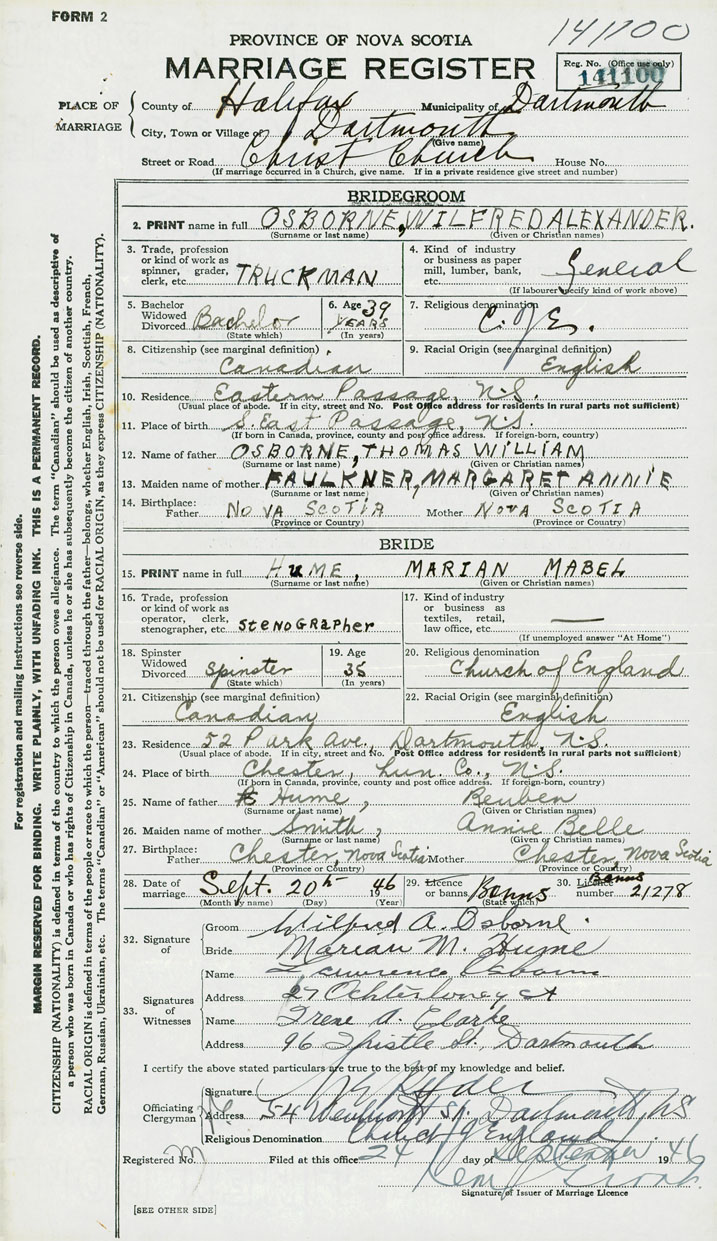 FORM 2
141100
PROVINCE OF NOVA SCOTIA
MARRIAGE REGISTER
Reg. No. (Office use only)
141100
PLACE OF MARRIAGE
County of Halifax Municipality of Dartmouth
City, Town or Village of Dartmouth
(Give name)
Street or Road Christ Church House No.
(If marriage occurred in a Church, give name. If in a private residence give street and number)
BRIDEGROOM
2. PRINT name in full OSBORNE, WILFRED ALEXANDER.
(Surname or last name) (Given or Christian names)
3. Trade, profession or kind of work as spinner, grader, clerk, etc. TRUCKMAN
4. Kind of industry or business as paper mill, lumber, bank, etc. General
(If labourer specify kind of work above)
5. Bachelor Widowed Divorced Bachelor
(State which)
6. Age 39 YEARS
(In years)
7. Religious denomination C. of E.
8. Citizenship (see marginal definition) Canadian
9. Racial Origin (see marginal definition) English
10. Residence Eastern Passage, N.S.
(Usual place of abode. If in city, street and No. Post Office address for residents in rural parts not sufficient)
11. Place of birth S. East Passage, N.S.
(If born in Canada, province, county and post office address. If foreign-born, country)
12. Name of father OSBORNE, THOMAS WILLIAM
(Surname or last name) (Given or Christian names)
13. Maiden name of mother FAULKNER, MARGARET ANNIE
(Surname or last name) (Given or Christian names)
14. Birthplace: Father NOVA SCOTIA Mother NOVA SCOTIA
(Province or Country) (Province or Country)
BRIDE
15. PRINT name in full HUME, MARIAN MABEL
(Surname or last name) (Given or Christian names)
16. Trade, profession or kind of work as operator, clerk, stenographer, etc. stenographer
17. Kind of industry or business as textiles, retail, law office, etc. —
(If unemployed answer "At Home")
18. Spinster Widowed Divorced Spinster
(State which)
19. Age 35
(In years)
20. Religious denomination Church of England
21. Citizenship (see marginal definition) Canadian
22. Racial Origin (see marginal definition) English
23. Residence 52 Park Ave., Dartmouth, N.S.
(Usual place of abode. If in city, street and No. Post Office address for residents in rural parts not sufficient)
24. Place of birth Chester, Lun. Co., N.S.
(If born in Canada, province, county and post office address. If foreign-born, country)
25. Name of father Hume, Reuben
(Surname or last name) (Given or Christian names)
26. Maiden name of mother Smith, Annie Belle
(Surname or last name) (Given or Christian names)
27. Birthplace: Father Chester, Nova Scotia Mother Chester, Nova Scotia
(Province or Country) (Province or Country)
28. Date of marriage Sept. 20th 1946
(Month by name) (Day) (Year)
29. Licence or banns Banns
(State which)
30. Licence Banns number 21278
32. Signature of
Groom Wilfred A. Osborne.
Bride Marian M. Hume
33. Signatures of Witnesses
Name Lawrence Osborne
Address 27 Ochterloney St
Name Irene A. Clarke
Address 96 Thistle St., Dartmouth
I certify the above stated particulars are true to the best of my knowledge and belief.
Officiating Clergyman
Signature Ryder
Address 54 Wentworth St. Dartmouth, NS
Religious Denomination Church of England
Registered No. Filed at this office 24 day of September 1946
Signature of Issuer of Marriage Licence
[SEE OTHER SIDE]
For registration and mailing instructions see reverse side.
MARGIN RESERVED FOR BINDING. WRITE PLAINLY, WITH UNFADING INK. THIS IS A PERMANENT RECORD.
CITIZENSHIP (NATIONALITY) is defined in terms of the country to which the person owes allegiance. The term "Canadian" should be used as descriptive of
a person who was born in Canada or who has rights of Citizenship in Canada, unless he or she has subsequently become the citizen of another country.
RACIAL ORIGIN is defined in terms of the people or race to which the person—traced through the father—belongs, whether English, Irish, Scottish, French,
German, Russian, Ukrainian, etc. The terms "Canadian" or "American" should not be used for RACIAL ORIGIN, as they express CITIZENSHIP (NATIONALITY).